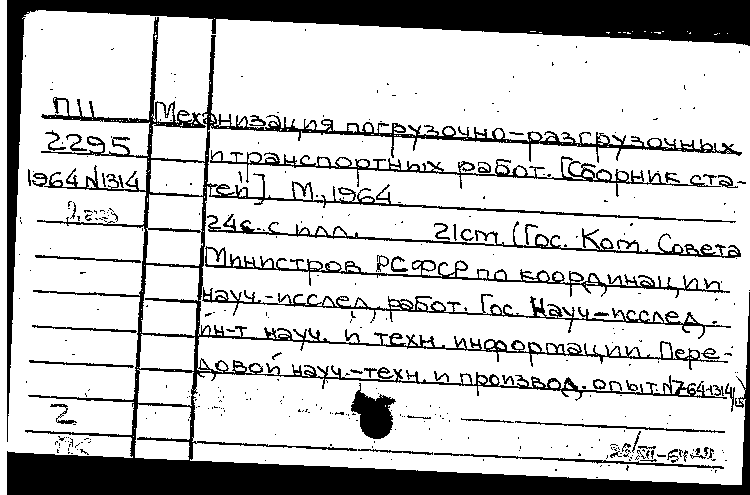 П11
2295
1964 N1314
Механизация погрузочно-разгрузочных
и транспортных работ. [Сборник ста-
тей]. М., 1964.
24с. с илл. 21см. (Гос. Ком. Совета
Министров РСФСР по координации
науч.-исслед. работ. Гос. Науч-исслед.
ин-т науч. и техн. информации. Пере-
довой науч.-техн. и производ. опыт. N7-64-1314/15)
2
ПК